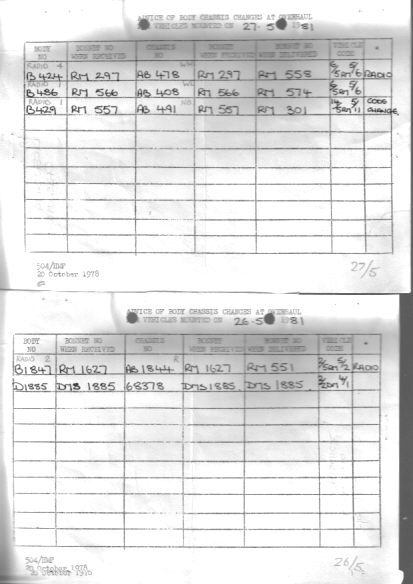 ADVICE OF BODY CHASSIS CHANGES AT OVERHAUL
VEHICLES MOUNTED ON 27·5 1981
BODY NO BONNET NO WHEN RECEIVED CHASSIS NO BONNET WHEN RECEIVED BONNET NO WHEN DELIVERED VEHICLE CODE
RADIO 4
B424 RM 297 AB 478 RM 297 RM 558 RADIO
RADIO 1
B486 RM 566 AB 408 RM 566 RM 574
RADIO 1
B429 RM 557 AB 491 RM 557 RM 301 CODE CHANGE.
504/HMP
20 October 1978
27/5
ADVICE OF BODY CHASSIS CHANGES AT OVERHAUL
VEHICLES MOUNTED ON 26·5 1981
BODY NO BONNET NO WHEN RECEIVED CHASSIS NO BONNET WHEN RECEIVED BONNET NO WHEN DELIVERED VEHICLE CODE
RADIO 2 R
B1847 RM 1627 AB 1844 RM 1627 RM 551 RADIO
D1885 DMS 1885 68378 DMS 1885. DMS 1885.
504/HMP
20 October 1978
26/5